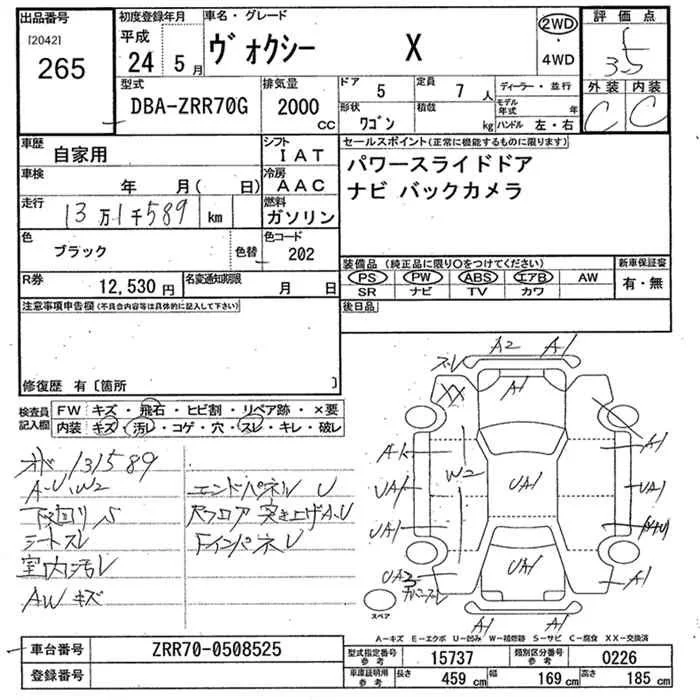 出品番号 初度登録年月 車名・グレード 2WD 評価点
[2042] 265 平成 24年 5月 ヴォクシー X ・4WD 3.5
型式 排気量 ドア 5 定員 7人 ディーラー・並行 外装 内装
DBA-ZRR70G 2000cc 形状 ワゴン 積載 kg モデル年式 年 ハンドル 左・右 C C
車歴 自家用 シフト IAT セールスポイント(正常に機能するものに限ります)
車検 年 月(日) 冷房 AAC パワースライドドア
走行 13万1千589 km 燃料 ガソリン ナビ バックカメラ
色 ブラック 色替 色コード 202
装備品(純正品に限り○をつけてください) 新車保証書
R券 12,530円 名変通知期限 月 日 PS PW ABS エアB AW 有・無
SR ナビ TV カワ
注意事項申告欄(不具合内容等は具体的に記入して下さい) 後日品
修復歴 有〔箇所 〕
検査員記入欄 FW キズ・飛石・ヒビ割・リペア跡・×要
内装 キズ・汚レ・コゲ・穴・スレ・キレ・破レ
131589
A-U,W2 エンドパネル U
下回りS バックフロア 突き上げA.U
シートスレ
室内汚レ
AWキズ
A2 A1
スレ A1
XX
A1
W2
UA1 UA1 UA1
UA1
UA3 UA1 A1
スペア
A1 A1
A-キズ E-エクボ U-凹み W-補修跡 S-サビ C-腐食 XX-交換済
車台番号 ZRR70-0508525 型式指定番号 参考 15737 類別区分番号 参考 0226
登録番号 車庫証明用 参考 長さ 459cm 幅 169cm 高さ 185cm